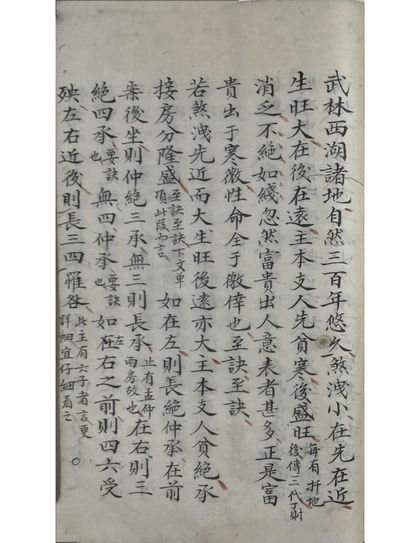 武林西湖諸地自然三百年悠久煞洩小在先在近
生旺大在後在遠主本支人先貧寒後盛旺每有扦地後傳三代丁財
消乏不絕如綫忽然富貴出人意表者甚多正是富
貴出于寒微性命全于徼倖也至訣至訣
若煞洩先近而大生旺後遠亦大主本支人貧絕承
接房分隆盛至訣至訣下文單頂此段而言如在左則長絕仲承在前
案後坐則仲絕三承無三則長承止有孟仲兩房故也在右則三
絕四承要訣也無四仲承要訣也如在左右之前則四六受
殃左右近後則長三四罹咎此主有六子者言更詳細宜仔細看之